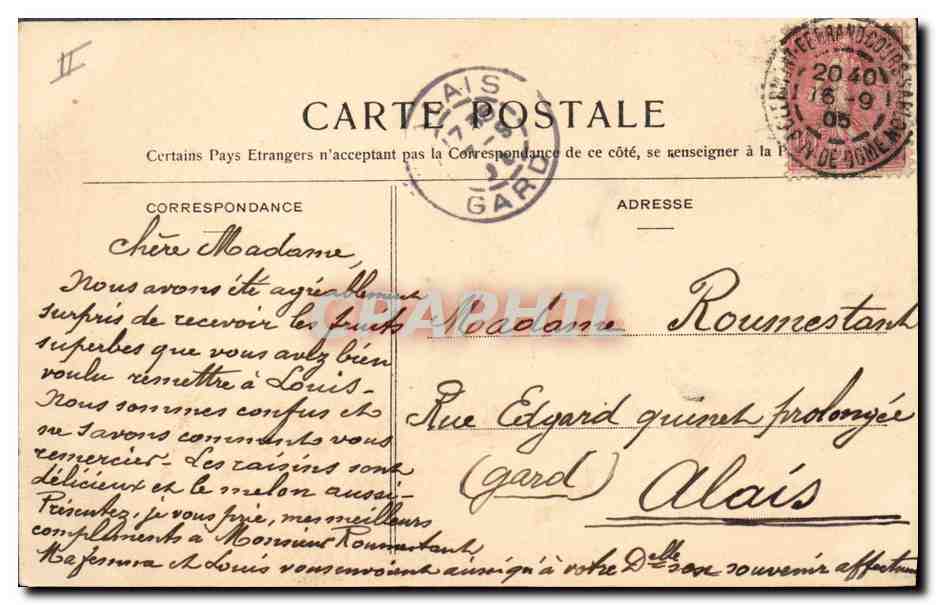 II
CARTE POSTALE
Certains Pays Etrangers n'acceptent pas la Correspondance de ce côté, se renseigner à la P
ALAIS
GARD
20 40
16 -9
05
PUY-DE-DOME
CORRESPONDANCE
chère Madame,
Nous avons été agréablement
surpris de recevoir les fruits
superbes que vous avez bien
voulu remettre à Louis-
Nous sommes confus et
ne savons comment vous
remercier- Les raisins sont
délicieux et le melon aussi-
Présentez, je vous prie, mes meilleurs
compliments à Monsieur Roumestant
Ma femme et Louis vous envoient ainsi qu'à votre Delle son souvenir affectueux
ADRESSE
Madame Roumestant
Rue Edgard quinet prolongée
(gard)
Alais
CPAPHIL